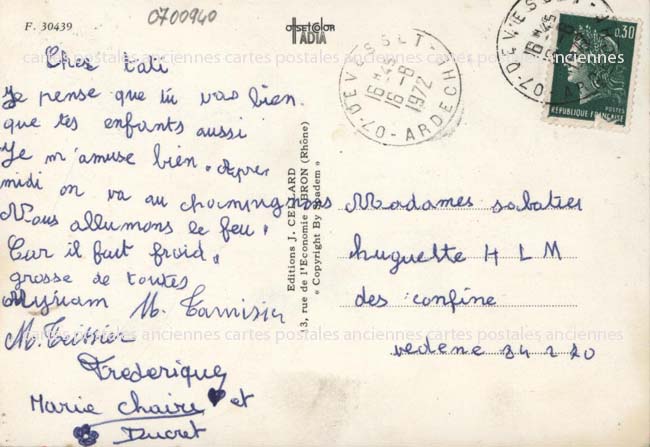 F. 30439
0700940
OFFSETCOLOR
IADTA
Cher tati
Je pense que tu vas bien.
que tes enfants aussi
Je m'amuse bien. Apres
midi on va au champignons
Nous allumons le feu.
Car il fait froid.
grosse de toutes
Myriam M. Tarnisier
M. Teissier
Frederique
Marie Chaire et
Ducret
Editions J. CELLARD
43, rue de l'Economie BRON (Rhône)
« Copyright By Spadem »
DEVESSET
16H45
16-8
1972
07-ARDECHE
DEVESSET
16H45
16-8
07-ARDECHE
0,30
POSTES
REPUBLIQUE FRANÇAISE
Madames sabatier
huguette H L M
des confine
vedene 84 220
cartes postales anciennes cartes postales anciennes cartes postales anciennes
cartes postales anciennes cartes postales anciennes cartes postales anciennes